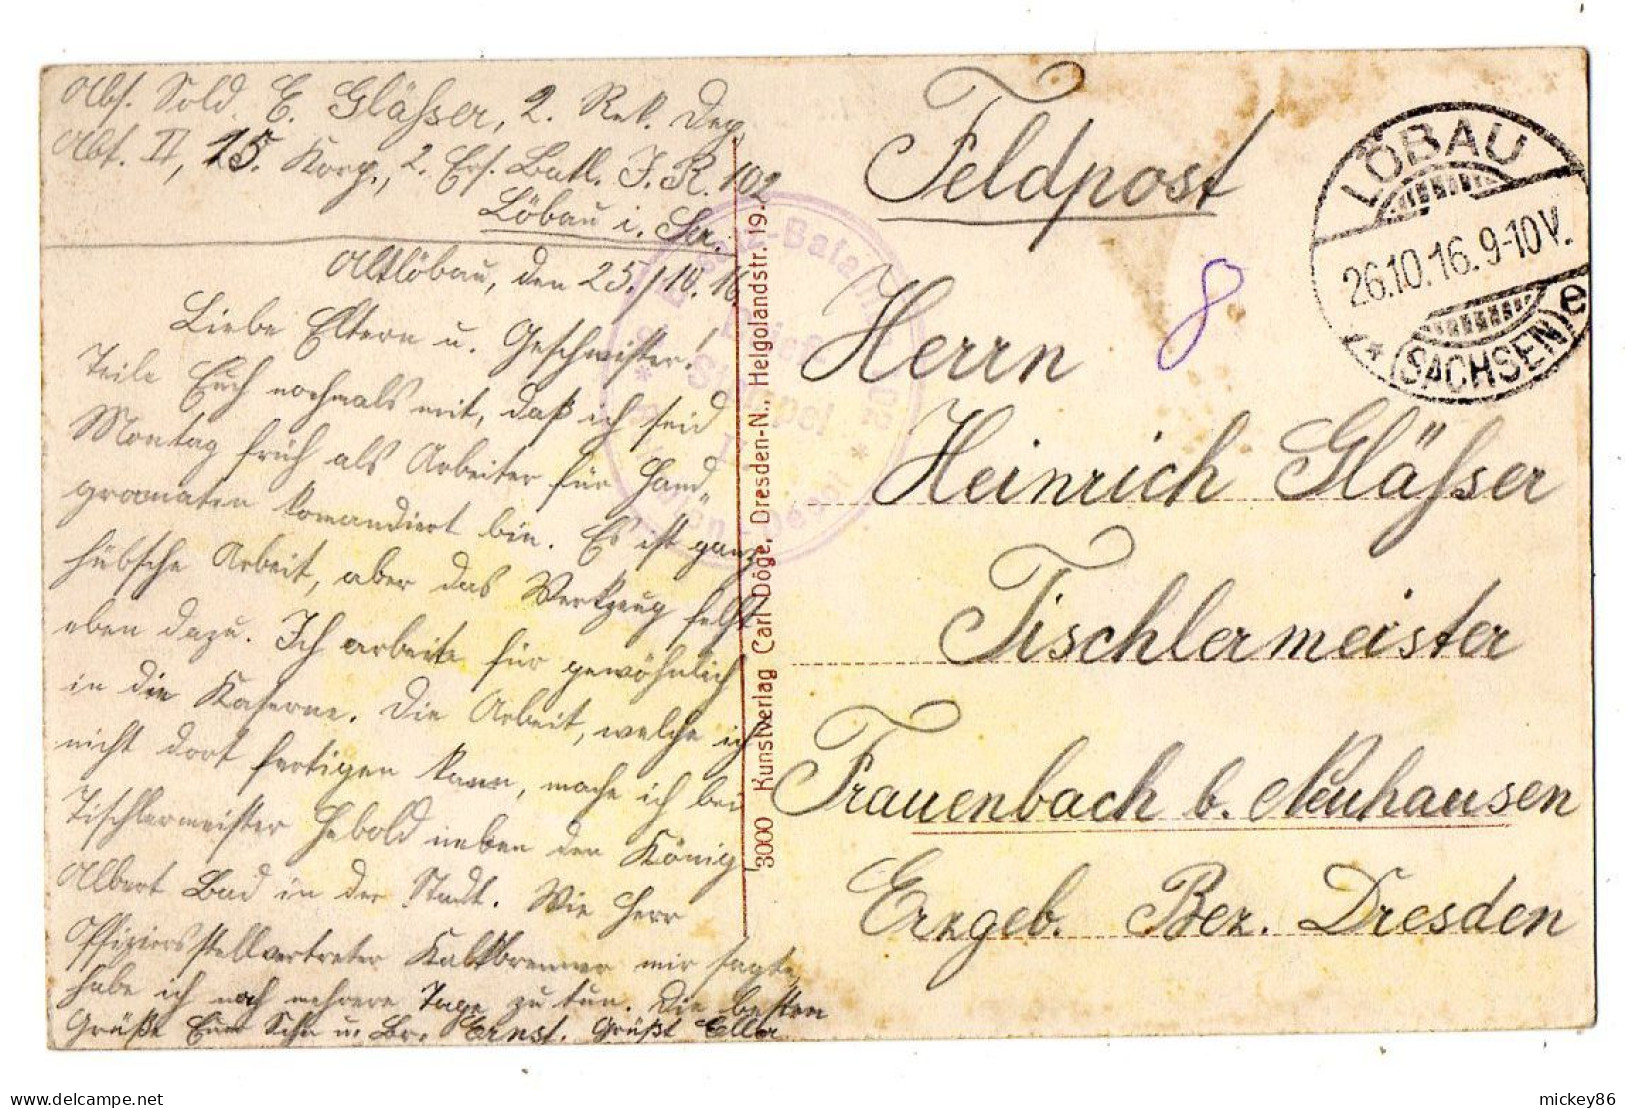 Abs. Sold. E. Gläßer, 2. Rek. Dep.
Abt. II, 15. Korp., 2. Ers. Batl. I. R. 102
Löbau i. Sa.
Altlöbau, den 25./10.16
Liebe Eltern u. Geschwister!
Teile Euch nochmals mit, daß ich seid
Montag früh als Arbeiter für Hand-
granaten komandiert bin. Es ist ganz
hübsche Arbeit, aber das Werkzeug fehlt
eben dazu. Ich arbeite für gewöhnlich
in die Kaserne. Die Arbeit, welche ich
nicht dort fertigen kann, mache ich bei
Tischlermeister Hebold neben den König
Albert Bad in der Stadt. Wie Herr
Offiziersstellvertreter Kaltbrenner mir sagte,
habe ich noch mehrere Tage zu tun. Die besten
Grüße Euer Sohn u. Br. Ernst. Grüßt Ella
3000 Kunstverlag Carl Döge, Dresden-N., Helgolandstr. 19.
Feldpost
8
Herrn
Heinrich Gläßer
Tischlermeister
Frauenbach b. Neuhausen
Erzgeb. Bez. Dresden
LÖBAU
26.10.16.9-10V.
* (SACHSEN) e
Brief
Stempel
mickey86